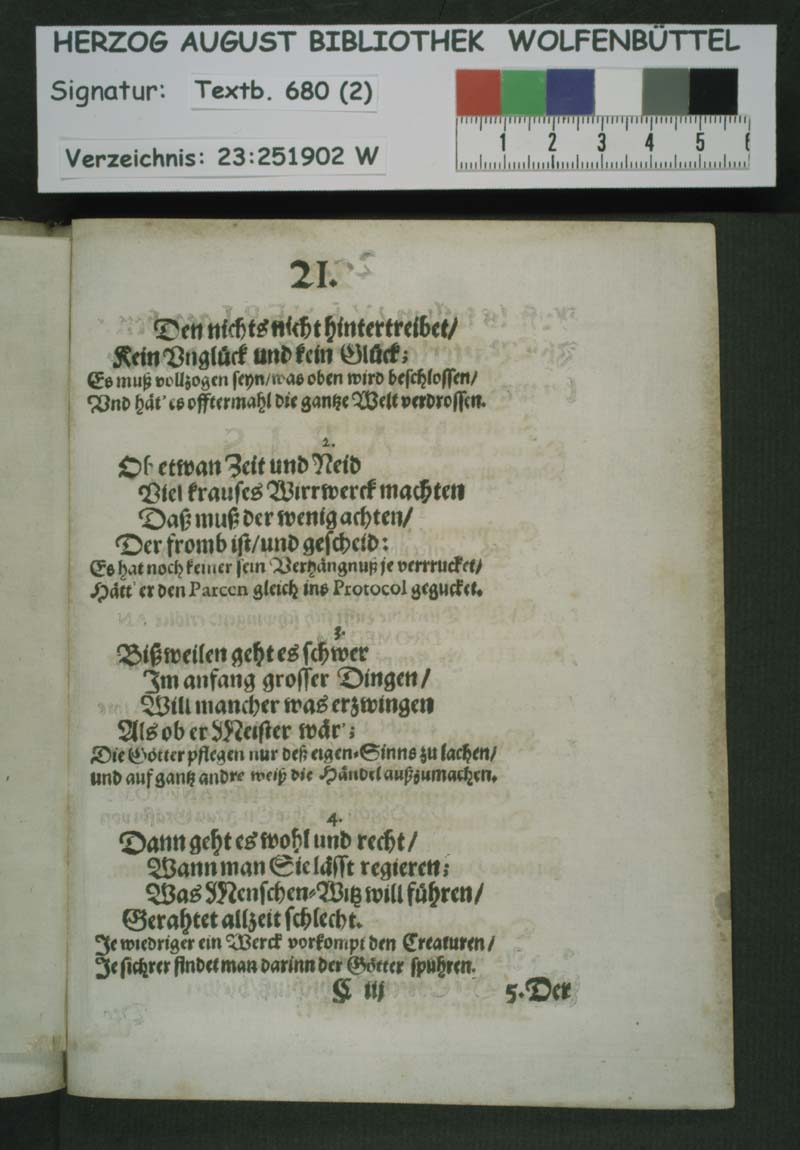 HERZOG AUGUST BIBLIOTHEK WOLFENBÜTTEL
Signatur: Textb. 680 (2)
Verzeichnis: 23:251902 W
1 2 3 4 5 6
21.
Den nichts nicht hintertreibet/
Kein Vnglück und kein Glück;
Es muß vollzogen seyn/was oben wird beschlossen/
Vnd hät' es offtermahl die gantze Welt verdrossen.
2.
Ob etwan Zeit und Neid
Viel krauses Wirrwerck machten
Daß muß der wenig achten/
Der fromb ist/und gescheid:
Es hat noch keiner sein Verhängnuß je verrrucket/
Hätt' er den Parcen gleich ins Protocol gegucket.
3.
Bißweilen geht es schwer
Im anfang grosser Dingen/
Will mancher was erzwingen
Als ob er Meister wär';
Die Götter pflegen nur deß eigen-Sinns zu lachen/
und auf gantz andre weiß die Händel außzumachen.
4.
Dann geht es wohl und recht/
Wann man Sie lässt regieren;
Was Menschen-Witz will führen/
Gerahtet allzeit schlecht.
Je wiedriger ein Werck vorkompt den Creaturen/
Je sichrer findet man darinn der Götter spuhren.
C iij 5. Der